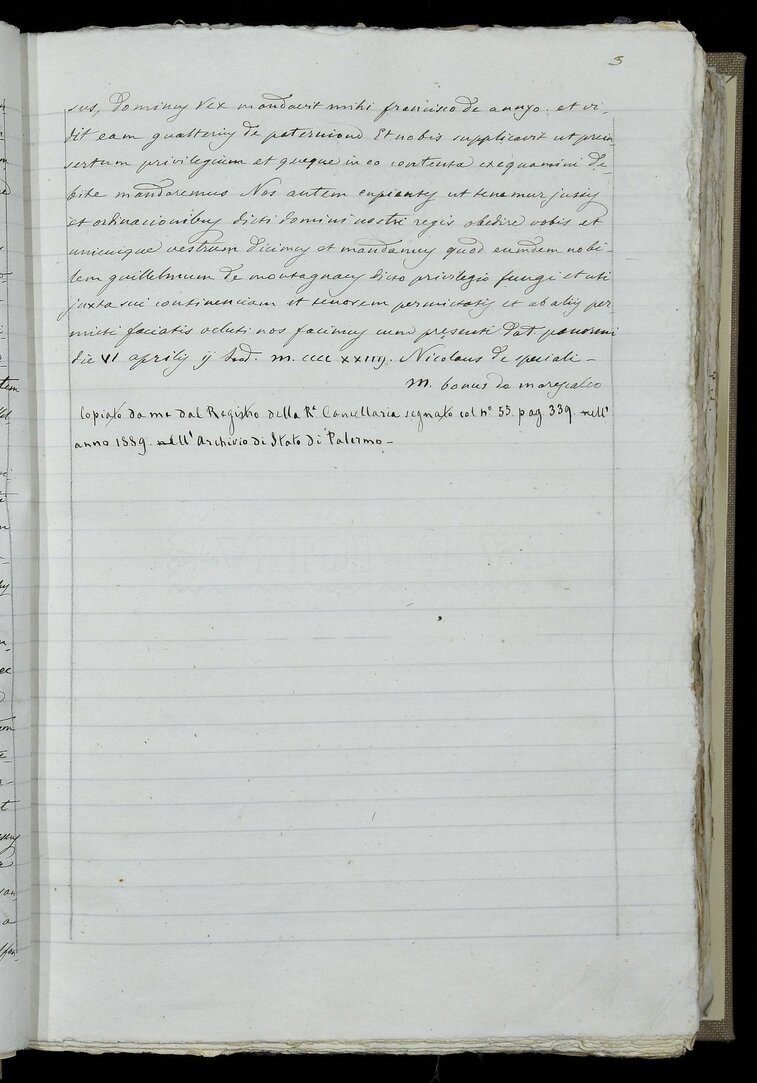 3
sus, Dominus Rex mandavit mihi francisco de anuxo. et vi-
dit eam gualterius de paternione Et nobis supplicavit ut prein-
sertum privilegium et queque in eo contenta exequamini de-
bite mandaremus Nos autem cupientes ut tenemur jussis
et ordinacionibus dicti domini nostri regis obedire vobis et
unicuique vestrum dicimus et mandamus quod eumdem nobi-
lem guillelmum de montagnaes dicto privilegio fungi et uti
juxta sui continenciam et tenorem permictatis et ab aliis per-
micti faciatis veluti nos facimus cum presenti Dat panormi
die VI aprilis ij Ind. m. cccc xxiiij. Nicolaus de speciali -
m. bonus de marescalco
Copiato da me dal Registro della R.ª Cancellaria segnato col nº 55. pag. 339. nell'
anno 1889. nell'Archivio di Stato di Palermo -